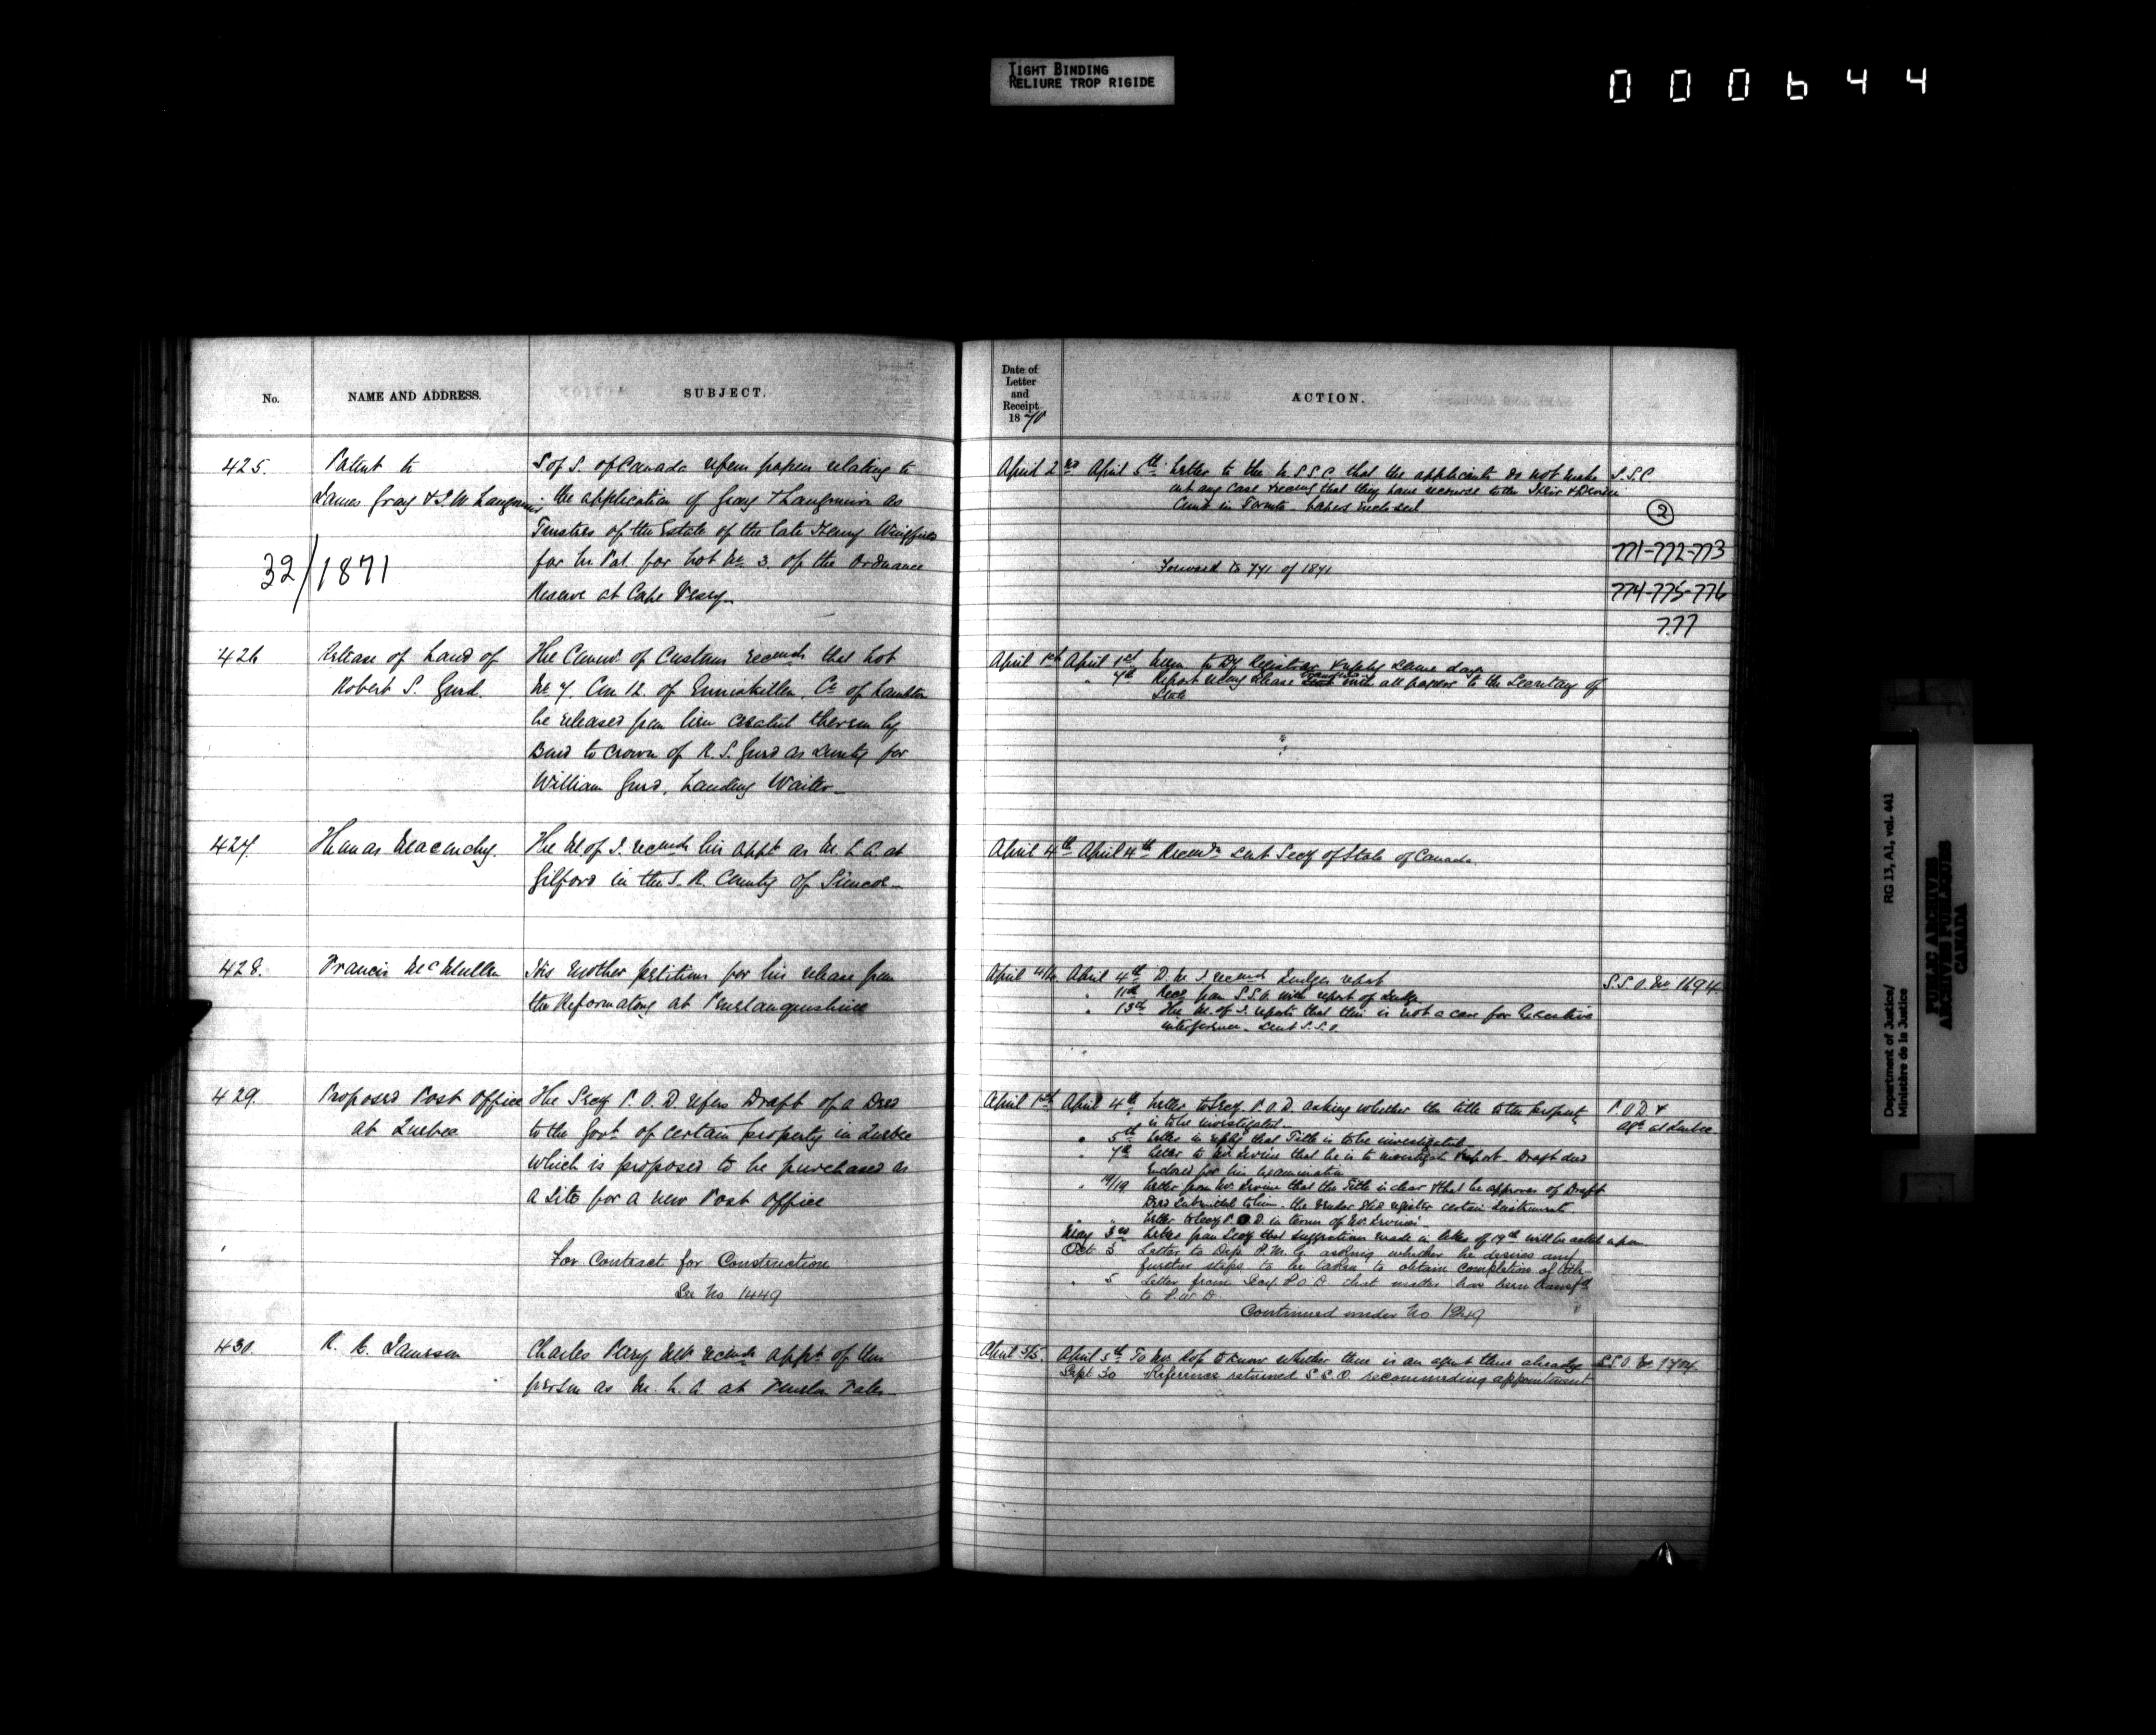 TIGHT BINDING
RELIURE TROP RIGIDE
000644
No. NAME AND ADDRESS. SUBJECT.
425. Patent to S of S. of Canada refers papers relating to
James Gray & J. W. Langmuir the application of Gray & Langmuir as
Trustees of the Estate of the late Henry Wingfield
32/1871 for Ls Pat. for Lot No 3. of the Ordnance
Reserve at Cape Vesey
426 Release of Land of The Commr of Customs recends that Lot
Robert S. Gurd. No 7. Con 12. of Enniskillen, Co of Lambton
be released from lien created thereon by
Bond to Crown of R. S. Gurd as surety for
William Gurd, Landing Waiter
427. Thomas Maconchy. The M of J. recends his appt as M. L. A. at
Gilford in the S. R. County of Simcoe
428. Francis McMullen His Mother petitions for his release from
the Reformatory at Penetanguishine
429. Proposed Post Office The Secy P. O. D. refers Draft of a Deed
at Quebec to the Govt of certain property in Quebec
which is proposed to be purchased as
a site for a new Post Office
For Contract for Construction
See No 1449
430. R. C. Jameson Charles Perry recends appt of this
person as M. L. A. at Fenelon Falls
Date of
Letter
and
Receipt
1870
ACTION.
April 2nd April 5th Letter to the U S S C that the applicants do not make S. S. C
out any case & recomg that they have recourse to the Heir & Devisee
Comn in Toronto. papers enclosed
②
771-772-773
Forward to 771 of 1871
774-775-776
777
April 1st April 1st Memo to Dy Registrar & reply same day
" 7th Report recomg release with all papers to the Secretary of
State
April 4th April 4th Recomdn sent Secy of State of Canada
April 4/4 April 4th D. M. J. recends Judges report S. S. O. No 1694
" 11th Recd from S. S. O. with report of Judge
" 13th The M. of J. reports that this is not a case for Executive
interference. Sent S. S. O.
April 1st April 4th Letter to Secy. P. O. D. asking whether the title to the property P. O. D. &
is to be investigated Agt at Quebec.
" 5th Letter in reply that Title is to be investigated
" 7th Letter to Mr Irvine that he is to investigate & report. Draft deed
Enclosed for his examination
" 19/19 Letter from Mr. Irvine that the Title is clear & that he approves of Draft
Deed submitted to him. the Vendor shd register certain Instruments
" " Letter to Secy P. O. D. in terms of Mr. Irvines
May 3rd Letter from Secy that suggestions made in letter of 19th will be acted upon
Oct 3 Letter to Dep. P. M. G. asking whether he desires any
further steps to be taken to obtain completion of title
" 5 Letter from Secy P. O. D. that matter has been transfd
to P. W. D.
Continued under No 1249
April 5/5. April 5th To Mr. to know whether there is an agent there already S. S. O. No 1704
Sept 30 Reference returned S. S. O. recommending appointment
Department of Justice/ RG 13, A1, vol. 441
Ministère de la Justice
PUBLIC ARCHIVES
ARCHIVES PUBLIQUES
CANADA